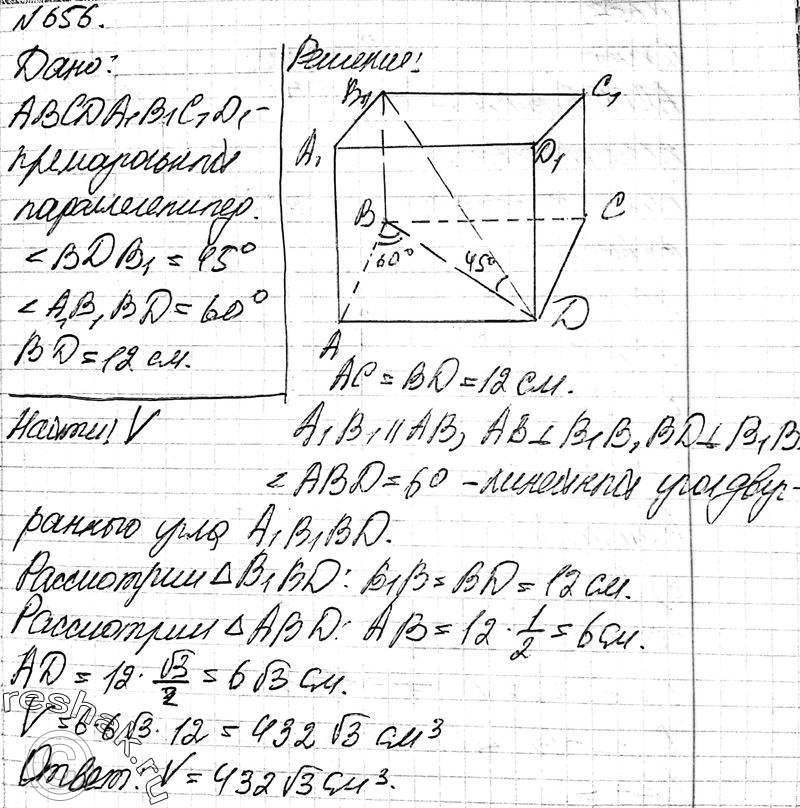 №656.
Дано:
ABCDA₁B₁C₁D₁ -
прямоугольный
параллелепипед.
∠BDB₁ = 45°
∠A₁B₁BD = 60°
BD = 12 см.
Найти: V
Решение:
B₁
C₁
A₁
D₁
B
C
60°
45°
A
D
AC = BD = 12 см.
A₁B₁ || AB, AB ⊥ B₁B, BD ⊥ B₁B
∠ABD = 60 - линейный угол двуг-
ранного угла A₁B₁BD.
Рассмотрим △ B₁BD: B₁B = BD = 12 см.
Рассмотрим △ ABD: AB = 12 · 1/2 = 6 см.
AD = 12 · √3/2 = 6√3 см.
V = 6·6√3 · 12 = 432 √3 см³
Ответ: V = 432√3 см³.
reshak.ru